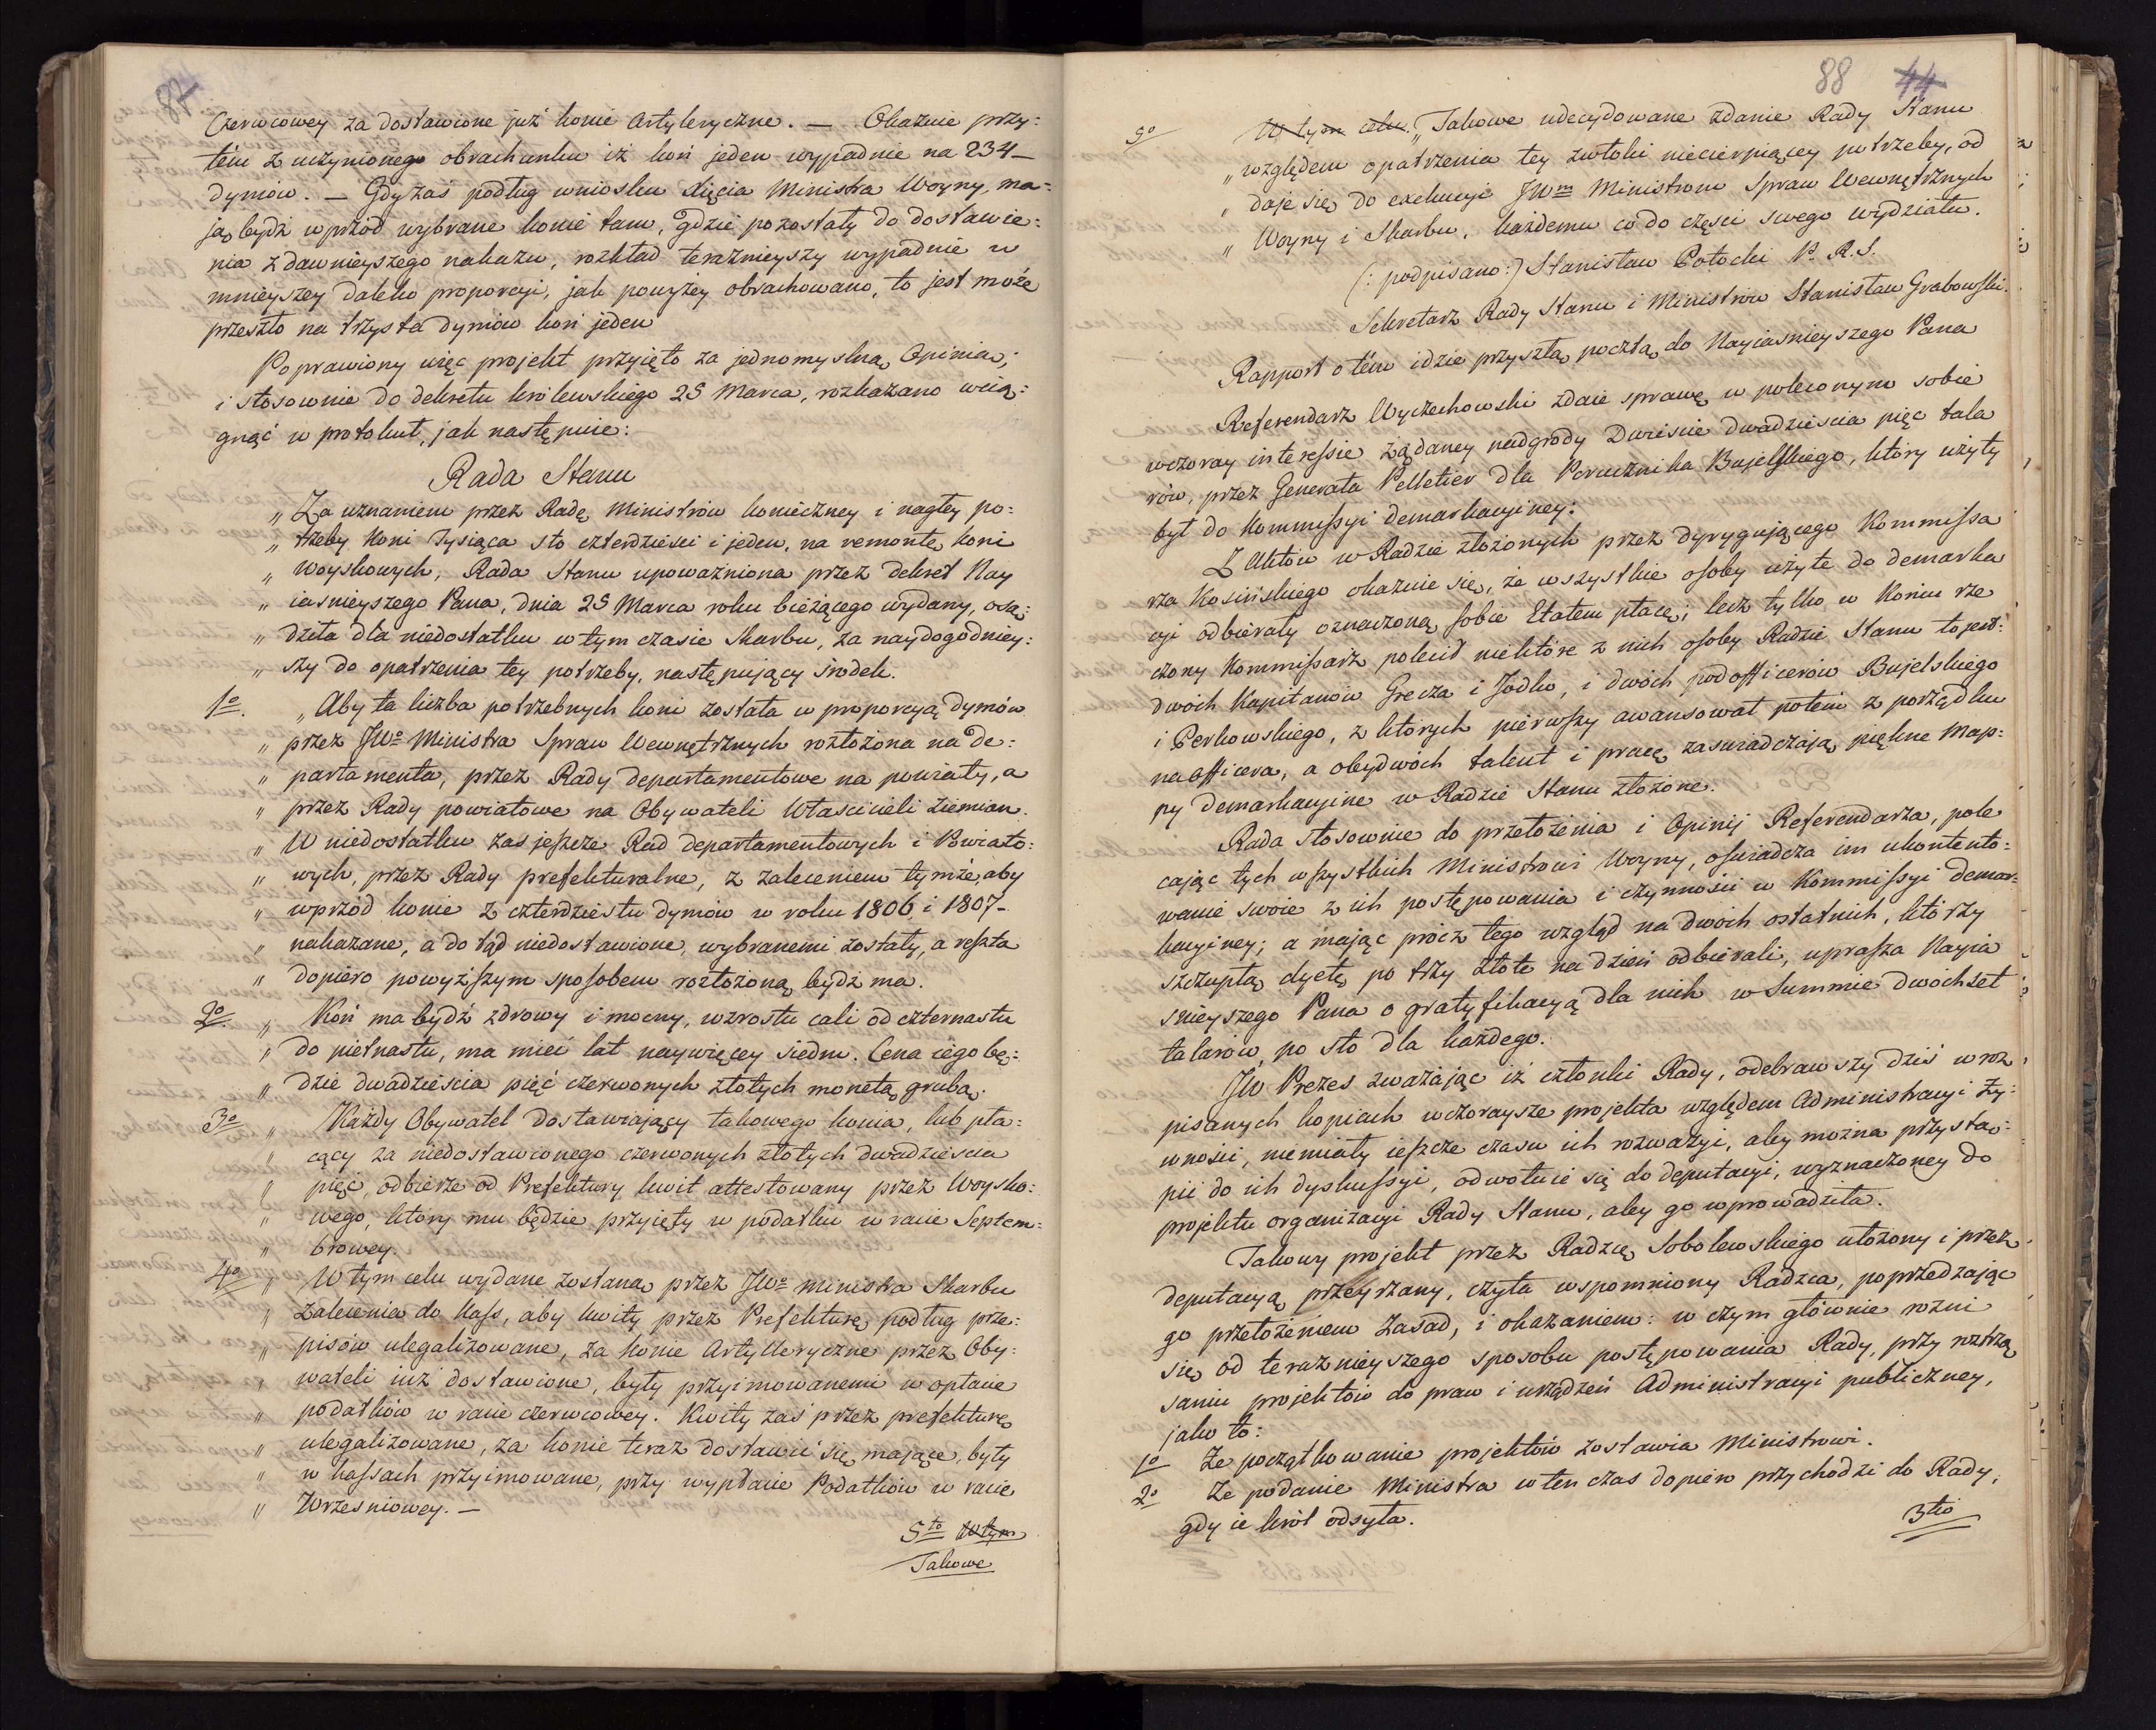 87
Czerwcowey za dostawione już konie Artyleryczne. — Okazuie przy:
tém z uczynionego obrachunku iż koń jeden wypadnie na 234 —
dymów. — Gdy zaś podług wniosku Xięcia Ministra Woyny, ma:
ją bydź wprzód wybrane konie tam, gdzie pozostały do dostawie:
nia z dawnieyszego nakazu, rozkład teraznieyszy wypadnie w
mnieyszey daleko proporcyi, jak powyżey obrachowano, to jest może
przeszło na trzysta dymów koń jeden
Poprawiony więc projekt przyięto za jednomyslną Opinią;
i stosownie do dekretu królewskiego 25 Marca, rozkazano wcią:
gnąć w protokuł, jak następuie:
Rada Stanu
„ Za uznaniem przez Radę Ministrow konieczney i nagłey po:
„ trzeby Koni Tysiąca sto czterdzieści i jeden, na remontę Koni
„ Woyskowych, Rada Stanu upoważniona przez dekret Nay
„ iasnieyszego Pana, dnia 25 Marca roku bieżącego wydany, osą:
„ dziła dla niedostatku w tym czasie Skarbu, za naydogodniey:
„ szy do opatrzenia tey potrzeby, następujący srodek.
1o. „ Aby ta liczba potrzebnych koni została w proporcyą dymów
„ przez JWo Ministra Spraw Wewnętrznych rozłożona na de:
„ partamenta, przez Rady departamentowe na powiaty, a
„ przez Rady powiatowe na Obywateli Włascicieli ziemian.
„ W niedostatku zas jeszcze Rad departamentowych i Powiato:
„ wych, przez Rady prefekturalne, z zaleceniem tymże, aby
„ wprzód konie z czterdziestu dymów w roku 1806 i 1807 —
„ nakazane, a do tąd niedostawione, wybranemi zostały, a reszta
„ dopiero powyższym sposobem rozłożoną bydź ma.
2o. „ Koń ma bydź zdrowy i mocny, wzrostu cali od czternastu
„ do pietnastu, ma mieć lat naywięcey siedm. Cena iego bę:
„ dzie dwadzieścia pięć czerwonych złotych monetą grubą.
3o „ Każdy Obywatel dostawiający takowego konia, lub pła:
„ cący za niedostawionego czerwonych złotych dwadziescia
„ pięć, odbierze od Prefektury kwit attestowany przez Woysko:
„ wego, który mu będzie przyięty w podatku w racie Septem:
„ browey.
4o „ W tym celu wydane zostaną przez JWo Ministra Skarbu
„ zalecenia do Kass, aby kwity przez Prefekturę podług prze:
„ pisów ulegalizowane, za Konie Artylleryczne przez Oby:
„ wateli iuż dostawione, były przyimowanemi w opłacie
„ podatków w racie czerwcowey. Kwity zaś przez prefekturę
„ ulegalizowane, za konie teraz dostawić się mające, były
„ w kassach przyimowane, przy wypłacie Podatków w racie
„ Wrzesniowey. —
5to W tym
Takowe
88 44
5o W tym celu. „ Takowe udecydowane zdanie Rady Stanu
„ względem opatrzenia tey zwłoki niecierpiącey potrzeby, od
„ daje się do exekucyi JWm Ministrom Spraw Wewnętrznych
„ Woyny i Skarbu, każdemu co do części swego wydziału.
(: podpisano :) Stanisław Potocki P. R. S.
Sekretarz Rady Stanu i Ministrów Stanisław Grabowski.
Rapport o tém idzie przyszłą pocztą do Nayiasnieyszego Pana
Referendarz Wyczechowski zdaie sprawę w poleconym sobie
wczoray interessie żądaney nadgrody Dwiescie dwadziescia pięć tala
rów, przez Generała Pelletier dla Porucznika Bujelskiego, który użyty
był do Kommissyi demarkacyiney:
Z Aktów w Radzie złożonych przez dyrygującego Kommissa
rza Kosińskiego okazuie się, że wszystkie osoby użyte do demarka
cyi odbierały oznaczoną sobie Etatem płacę; lecz tylko w Koniu rze
czony Kommissarz polecił niektóre z nich osoby Radzie Stanu to jest:
dwóch Kapitanów Grecza i Jodko, i dwóch podofficerów Bujelskiego
i Perkowskiego, z których pierwszy awansował potém z porządku
na officera, a obydwóch talent i pracę zaswiadczają piękne Map:
py demarkacyine w Radzie Stanu złożone.
Rada stosownie do przełożenia i Opinij Referendarza, pole
cając tych wszystkich Ministrowi Woyny, oswiadcza im ukontento:
wanie swoie z ich postępowania i czynności w Kommissyi demar:
kacyiney; a mając prócz tego wzgląd na dwóch ostatnich, którzy
szczupłą dyetę po trzy złote na dzień odbierali, uprasza Nayia
snieyszego Pana o gratyfikacyą dla nich w Summie dwóchset
talarów, po sto dla każdego.
JW Prezes zważając iż członki Rady, odebrawszy dziś w roz
pisanych kopiach wczoraysze projekta względem Administracyi ży:
wności, niemiały ieszcze czasu ich rozważyi, aby można przystą:
pić do ich dyskussyi, odwołuie się do deputacyi, wyznaczoney do
projektu organizacyi Rady Stanu, aby go wprowadziła.
Takowy projekt przez Radzcę Sobolewskiego ułożony i przez
deputacyą przeyrzany, czyta wspomniony Radzca, poprzedzając
go przełożeniem zasad, i okazaniem: w czym głównie rożni
się od teraznieyszego sposobu postępowania Rady, przy roztrzą
saniu projektów do praw i urządzeń Administracyi publiczney,
jako to:
1o Ze początkowanie projektów zostawia Ministrowi.
2o Ze podanie Ministra w ten czas dopiero przychodzi do Rady,
gdy ie król odsyła.
3tio